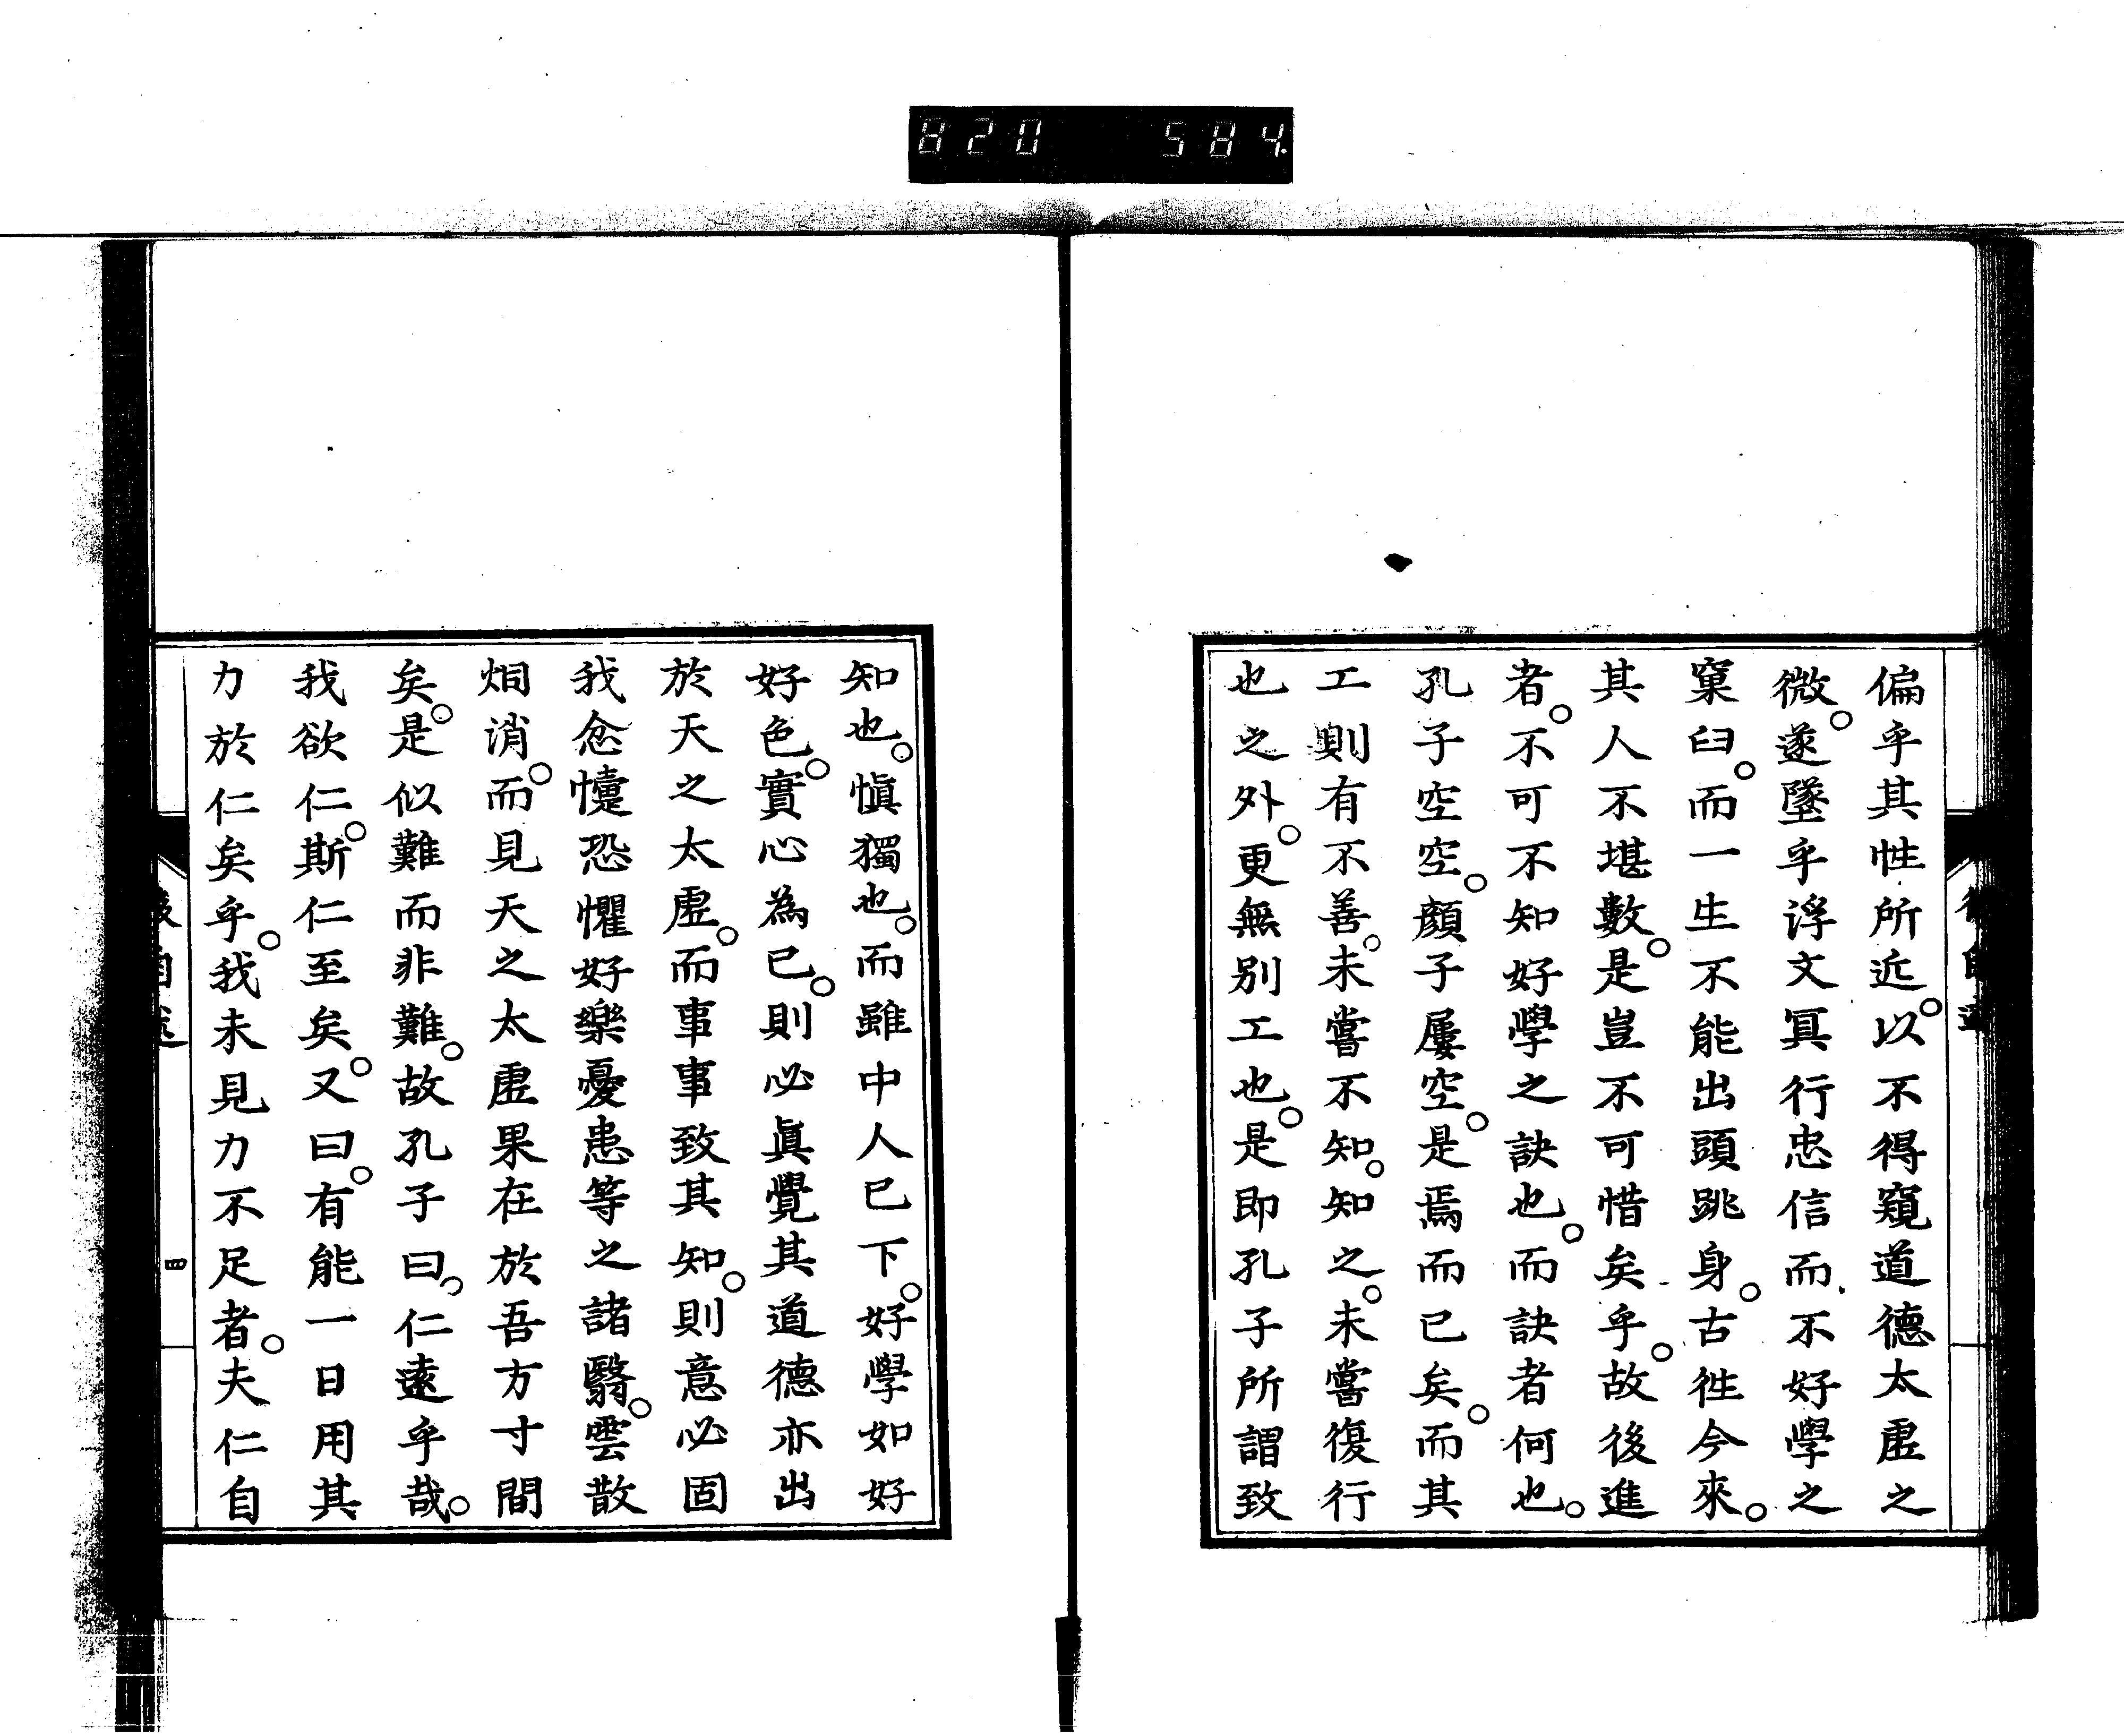 820 584
偏乎其性所近。以不得窺道德太虛之
微。遂墜乎浮文冥行忠信而不好學之
窠臼。而一生不能出頭跳身。古徃今來。
其人不堪數。是豈不可惜矣乎。故後進
者。不可不知好學之訣也。而訣者何也。
孔子空空。顏子屢空。是焉而已矣。而其
工則有不善。未嘗不知。知之。未嘗復行
也之外。更無別工也。是即孔子所謂致
知也。愼獨也。而雖中人已下。好學如好
好色。實心為已。則必眞覺其道德亦出
於天之太虛。而事事致其知。則意必固
我忿懥恐懼好樂憂患等之諸翳。雲散
烟消。而見天之太虛果在於吾方寸間
矣。是似難而非難。故孔子曰。仁遠乎哉。
我欲仁。斯仁至矣。又曰。有能一日用其
力於仁矣乎。我未見力不足者。夫仁自
四